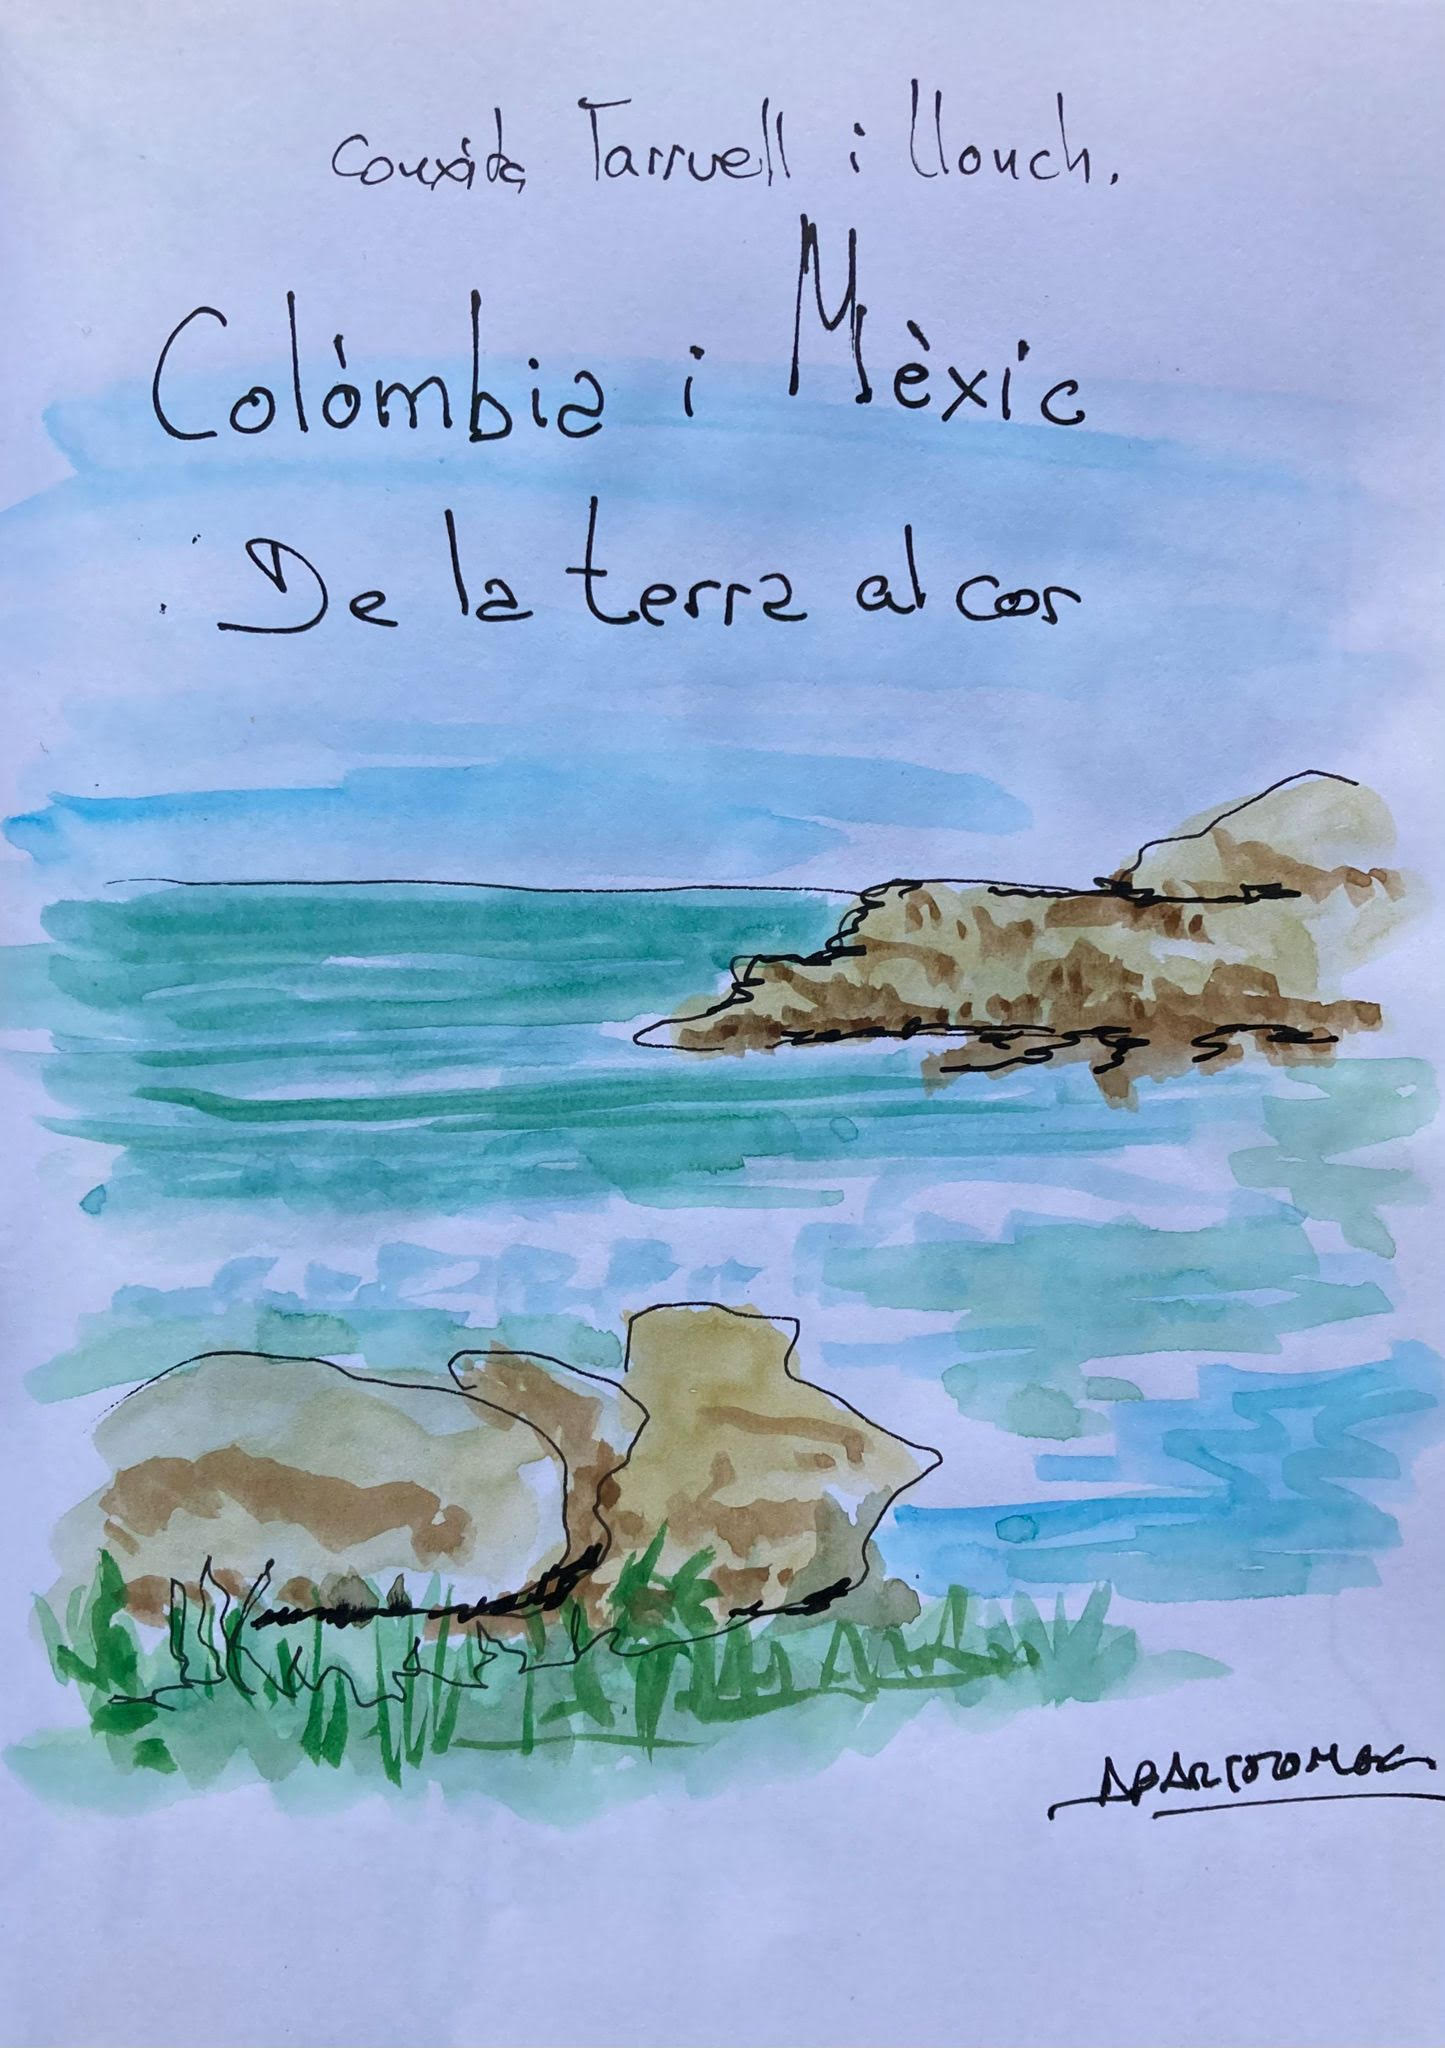 Conxita Tarruell i Llonch.
Colómbia i Mèxic
De la terra al cor